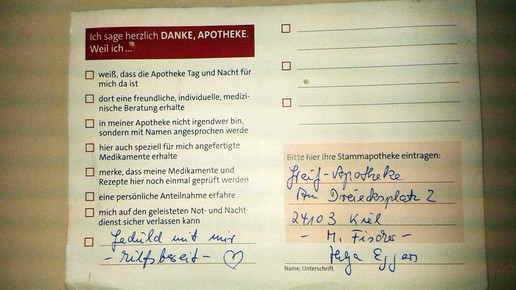 Ich sage herzlich DANKE, APOTHEKE.
Weil ich ...
weiß, dass die Apotheke Tag und Nacht für
mich da ist
dort eine freundliche, individuelle, medizi-
nische Beratung erhalte
in meiner Apotheke nicht irgendwer bin,
sondern mit Namen angesprochen werde
hier auch speziell für mich angefertigte
Medikamente erhalte
merke, dass meine Medikamente und
Rezepte hier noch einmal geprüft werden
eine persönliche Anteilnahme erfahre
mich auf den geleisteten Not- und Nacht-
dienst sicher verlassen kann
Geduld mit mir
- hilfsbereit - ♡
Bitte hier Ihre Stammapotheke eintragen:
Greif-Apotheke
Am Dreiecksplatz 2
24103 Kiel
- M. Fischer -
Helga Eggers
Name, Unterschrift